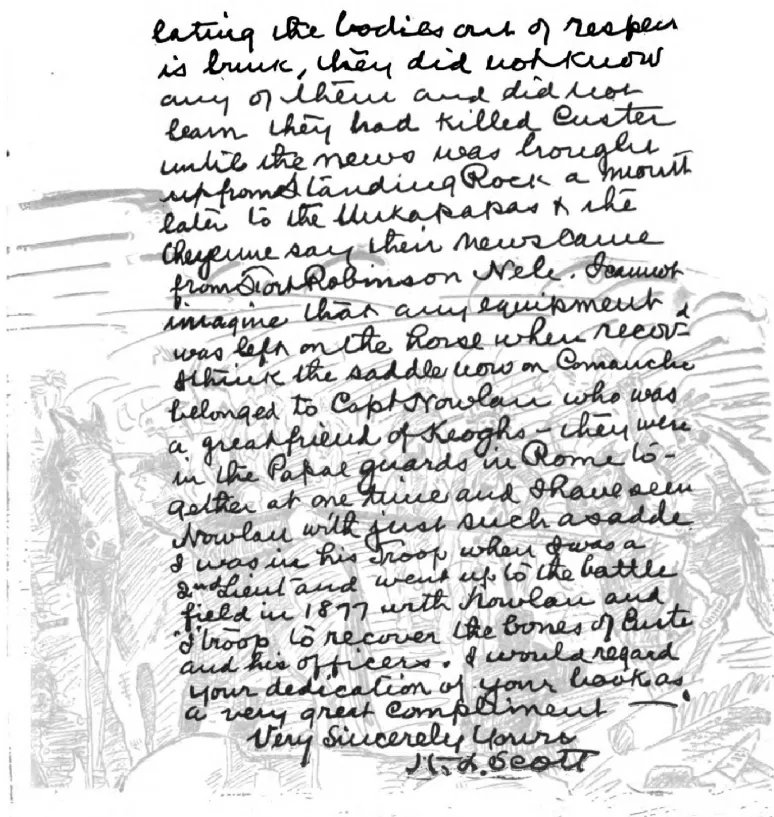 lating the bodies out of respect
is bunk, they did not know
any of them and did not
learn they had killed Custer
until the news was brought
up from Standing Rock a month
later to the Unkapapas & the
Cheyenne say their news came
from Fort Robinson Neb. I cannot
imagine that any equipment
was left on the horse when recov-d
I think the saddle now on Comanche
belonged to Capt Nowlan who was
a great friend of Keoghs - they were
in the Papal guards in Rome to-
gether at one time and I have seen
Nowlan with just such a saddle
I was in his Troop when I was a
2nd Lieut and went up to the battle
field in 1877 with Nowlan and
I troop to recover the bones of Custer
and his officers. I would regard
your dedication of your book as
a very great compliment —
Very Sincerely Yours
H. L. Scott